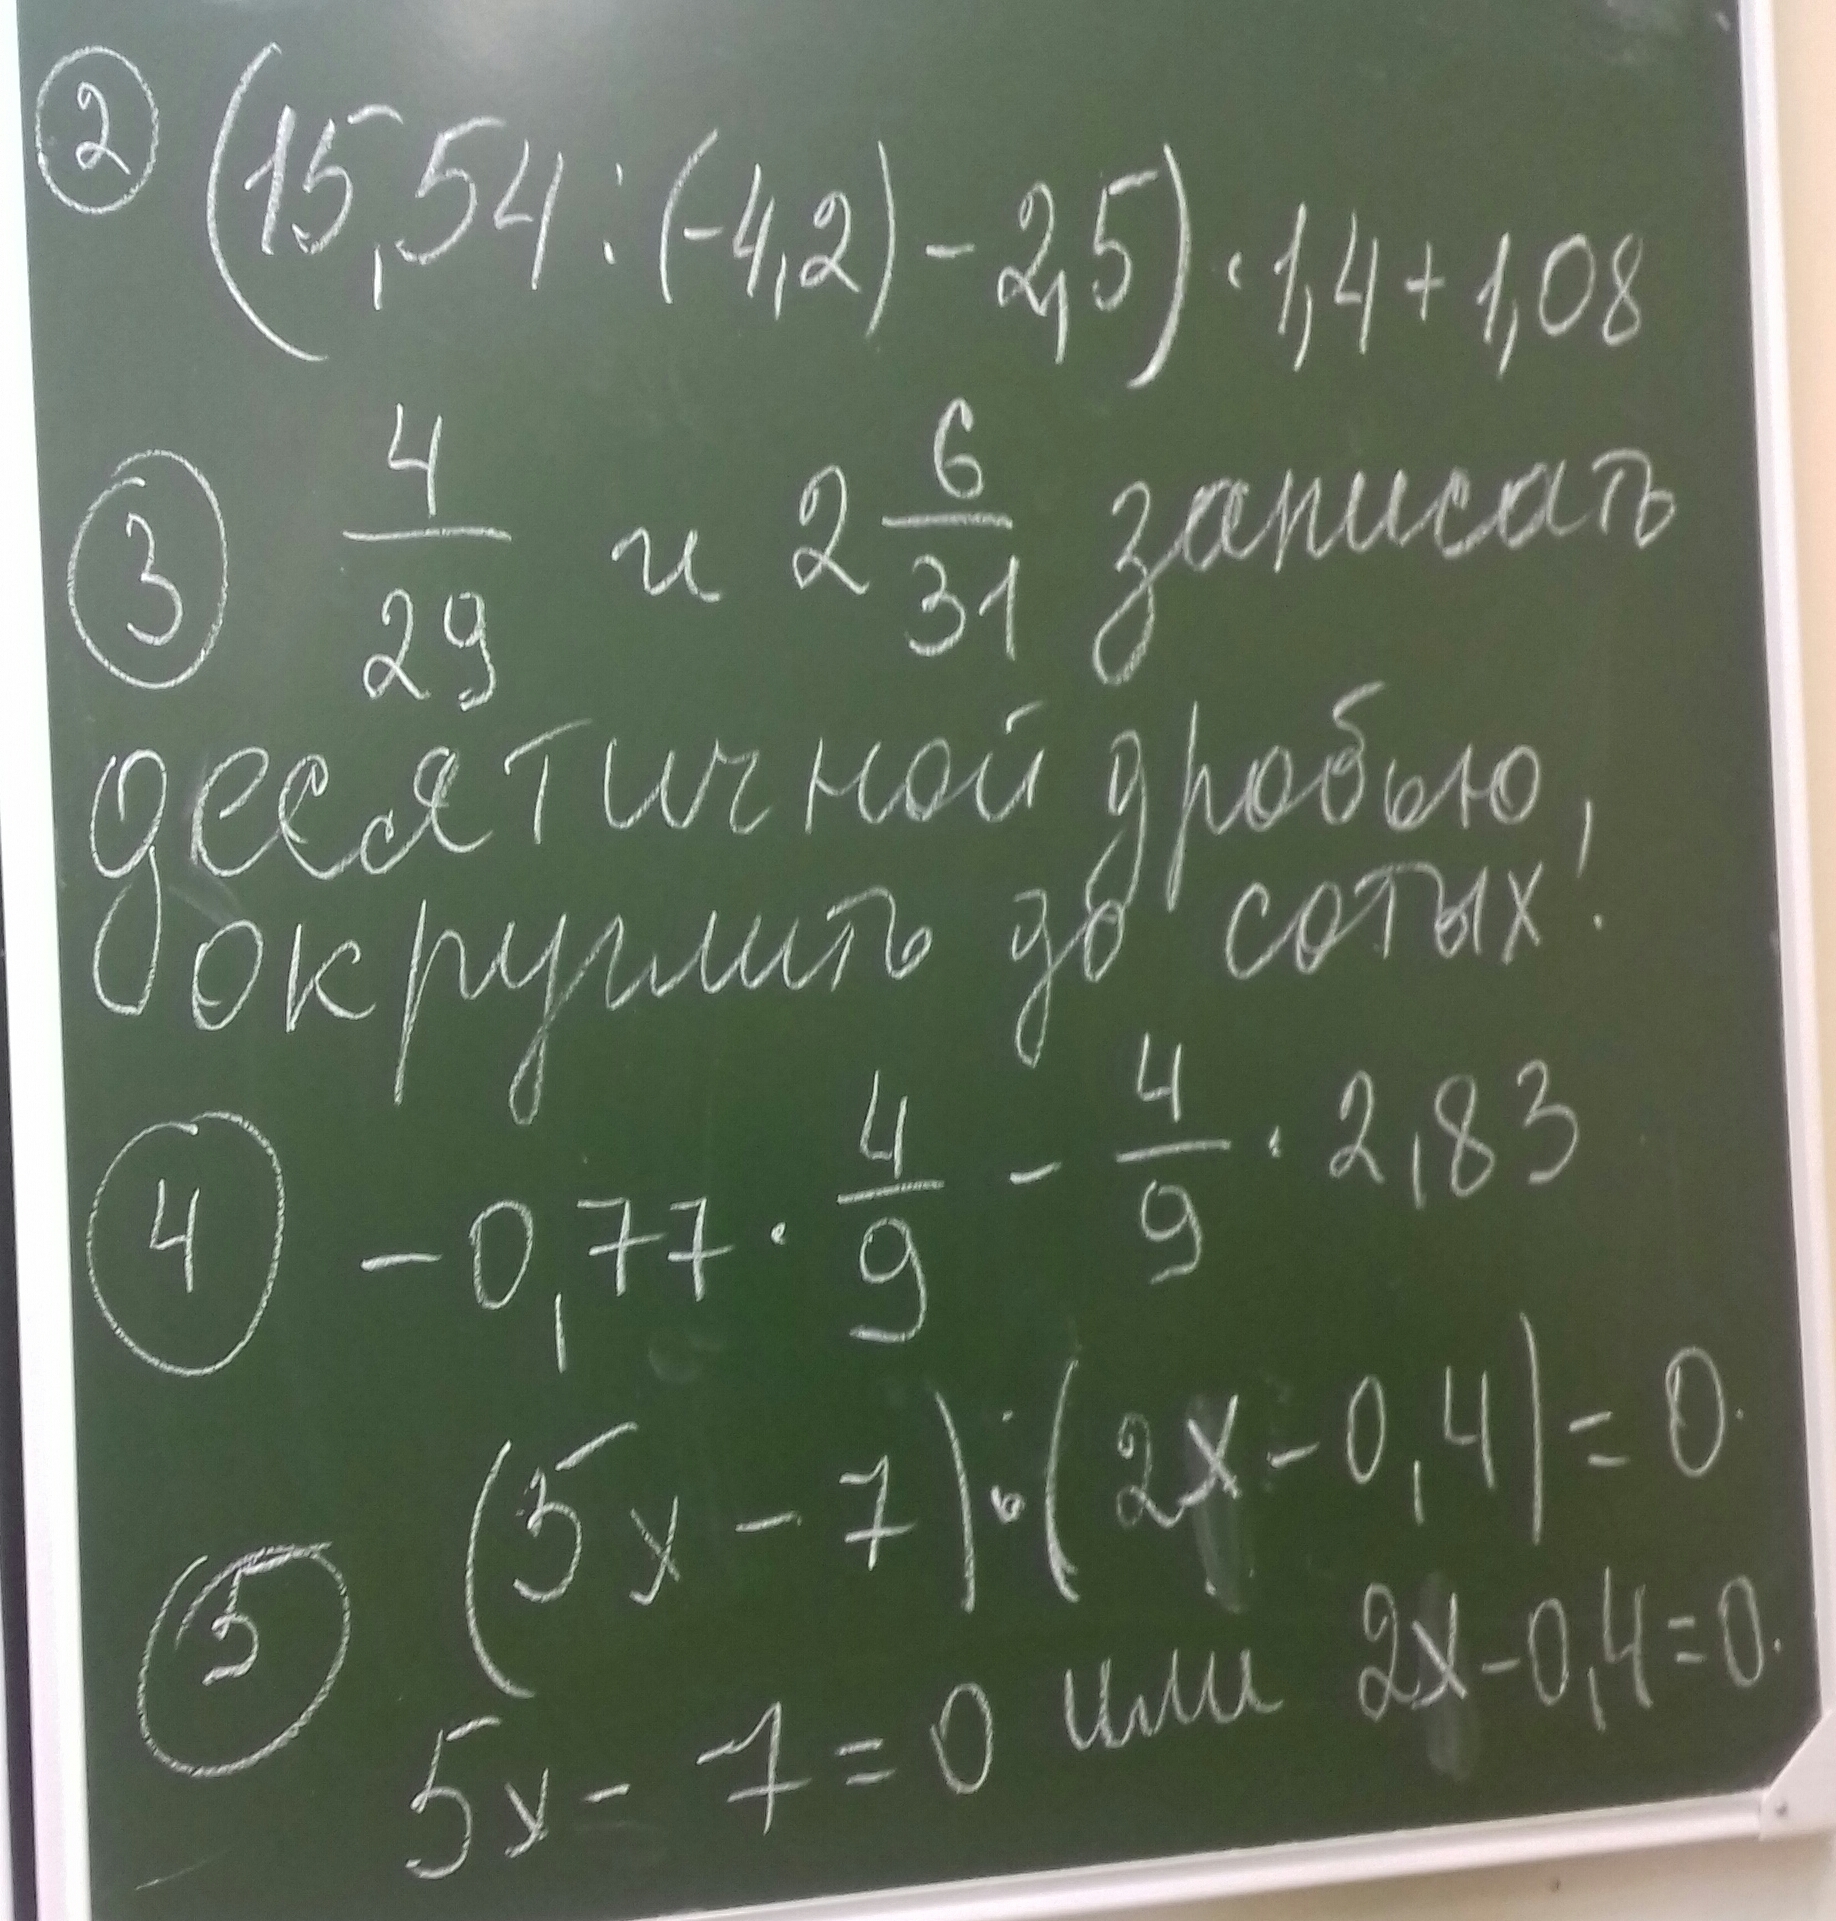 ② (15,54 : (-4,2) - 2,5) · 1,4 + 1,08
③ 4/29 и 2 6/31 записать
десятичной дробью,
округлить до сотых!
④ -0,77 · 4/9 - 4/9 · 2,83
⑤ (5x - 7) : (2x - 0,4) = 0.
5x - 7 = 0 или 2x - 0,4 = 0.